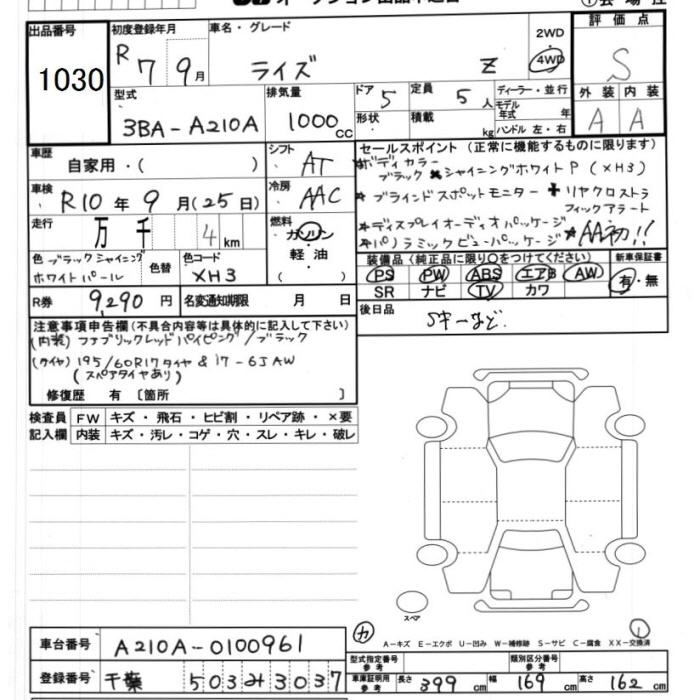 出品番号
1030
初度登録年月 R 7 9月
車名・グレード
ライズ Z
2WD
4WD
評価点
S
外装 内装
A A
型式
3BA-A210A
排気量
1000 CC
ドア 5
形状
定員 5 人
積載 kg
ディーラー・並行
モデル年式 年
ハンドル 左・右
車歴
自家用・( )
シフト AT
冷房 AAC
車検 R10年 9月(25日)
走行 万 千 4 km
燃料 ガソリン・軽油・( )
色 ブラックシャイニングホワイトパール
色替
色コード XH3
R券 9,290円
名変通知期限 月 日
セールスポイント(正常に機能するものに限ります)
*ボディカラー
ブラック*シャイニングホワイトP(XH3)
*ブラインドスポットモニター + リヤクロストラ
フィックアラート
*ディスプレイオーディオパッケージ
*パノラミックビューパッケージ *AA初!!
装備品(純正品に限り○をつけてください)
PS PW ABS エアB AW
SR ナビ TV カワ
新車保証書
有・無
後日品
Sキーなど.
注意事項申告欄(不具合内容等は具体的に記入して下さい)
(内装)ファブリックレッドパイピング/ブラック
(タイヤ)195/60R17タイヤ & 17-6JAW
(スペアタイヤあり)
修復歴 有 〔箇所 〕
検査員記入欄
FW キズ・飛石・ヒビ割・リペア跡・×要
内装 キズ・汚レ・コゲ・穴・スレ・キレ・破レ
スペア
カ
1
A-キズ E-エクボ U-凹み W-補修跡 S-サビ C-腐食 XX-交換済
車台番号 A210A-0100961
登録番号 千葉 503 み 3037
型式指定番号 参考
類別区分番号 参考
車庫証明用 参考 長さ 399 cm 幅 169 cm 高さ 162 cm